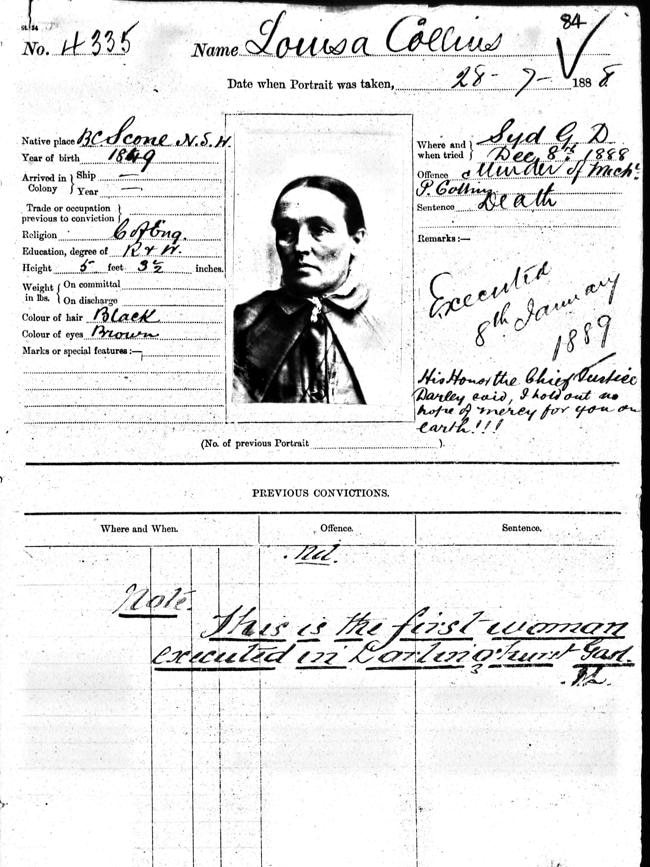 84
No. 4335 Name Louisa Collins
Date when Portrait was taken, 28-7- 1888
Native place BC Scone N.S.W.
Year of birth 1849
Arrived in Colony } Ship —
Year —
Trade or occupation previous to conviction }
Religion C of Eng.
Education, degree of R & W.
Height 5 feet 3½ inches.
Weight in lbs. { On committal
On discharge
Colour of hair Black
Colour of eyes Brown
Marks or special features:—
Where and when tried } Syd G D
Dec 8th 1888
Offence Murder of Mich.
P. Collins
Sentence Death
Remarks:—
Executed
8th January
1889
His Honor the Chief Justice
Darley said, I hold out no
hope of mercy for you on
earth!!!
(No. of previous Portrait ).
PREVIOUS CONVICTIONS.
Where and When. Offence. Sentence.
Nil.
Note.
This is the first woman
executed in Darlinghurst Gaol.